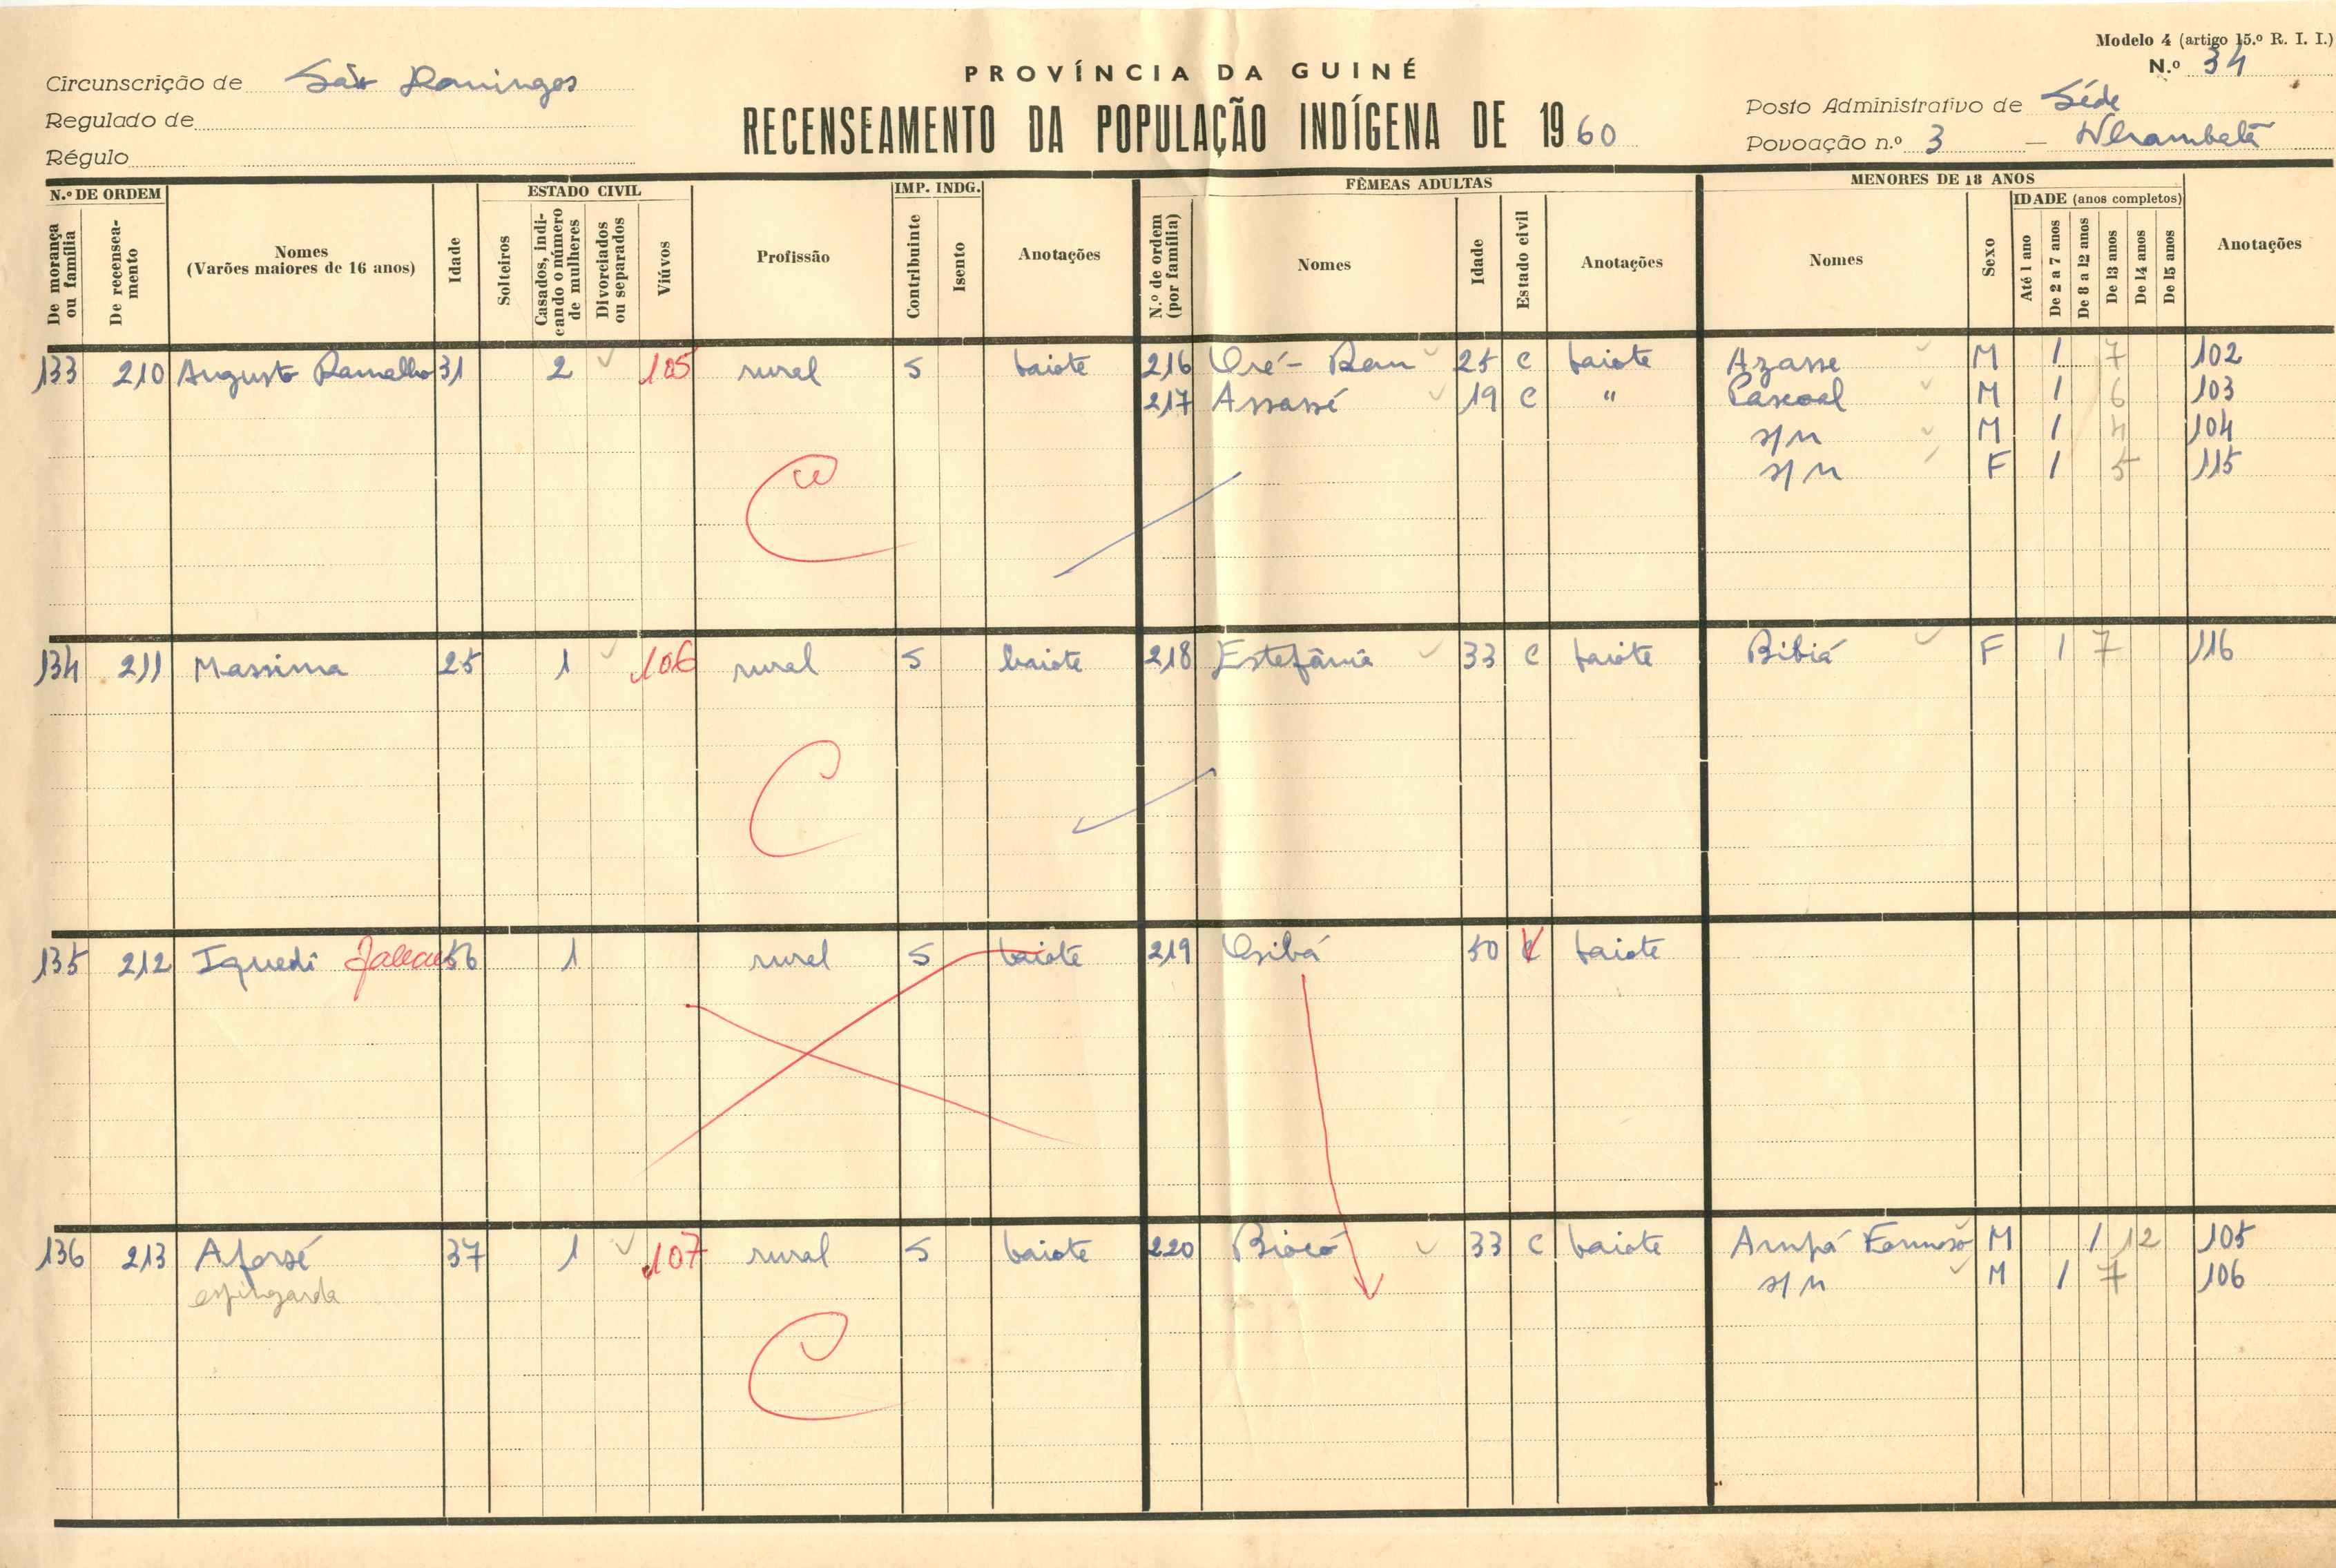 Modelo 4 (artigo 15.º R. I. I.)
N.º 34
PROVÍNCIA DA GUINÉ
RECENSEAMENTO DA POPULAÇÃO INDÍGENA DE 1960
Circunscrição de São Domingos
Regulado de
Régulo
Posto Administrativo de Séde
Povoação n.º 3 —
N.º DE ORDEM
De morança ou família
De recenseamento
Nomes
(Varões maiores de 16 anos)
Idade
ESTADO CIVIL
Solteiros
Casados, indicando o número de mulheres
Divorciados ou separados
Viúvos
Profissão
IMP. INDG.
Contribuinte
Isento
Anotações
FÊMEAS ADULTAS
N.º de ordem (por família)
Nomes
Idade
Estado civil
Anotações
MENORES DE 18 ANOS
Nomes
Sexo
IDADE (anos completos)
Até 1 ano
De 2 a 7 anos
De 8 a 12 anos
De 13 anos
De 14 anos
De 15 anos
Anotações
133 210 Augusto Ramalho 31 2 105 rural S baiote 216 25 C baiote Azasse M 1 7 102
217 Assassé 19 C " Pascoal M 1 6 103
s/n M 1 4 104
s/n F 1 5 115
134 211 Massima 25 1 106 rural S baiote 218 Estefânia 33 C baiote Bibiá F 1 7 116
135 212 Iquedi 56 1 rural S baiote 219 50 baiote
136 213 Aforsé 37 1 107 rural S baiote 220 33 C baiote M 1 12 105
espingarda s/n M 1 7 106